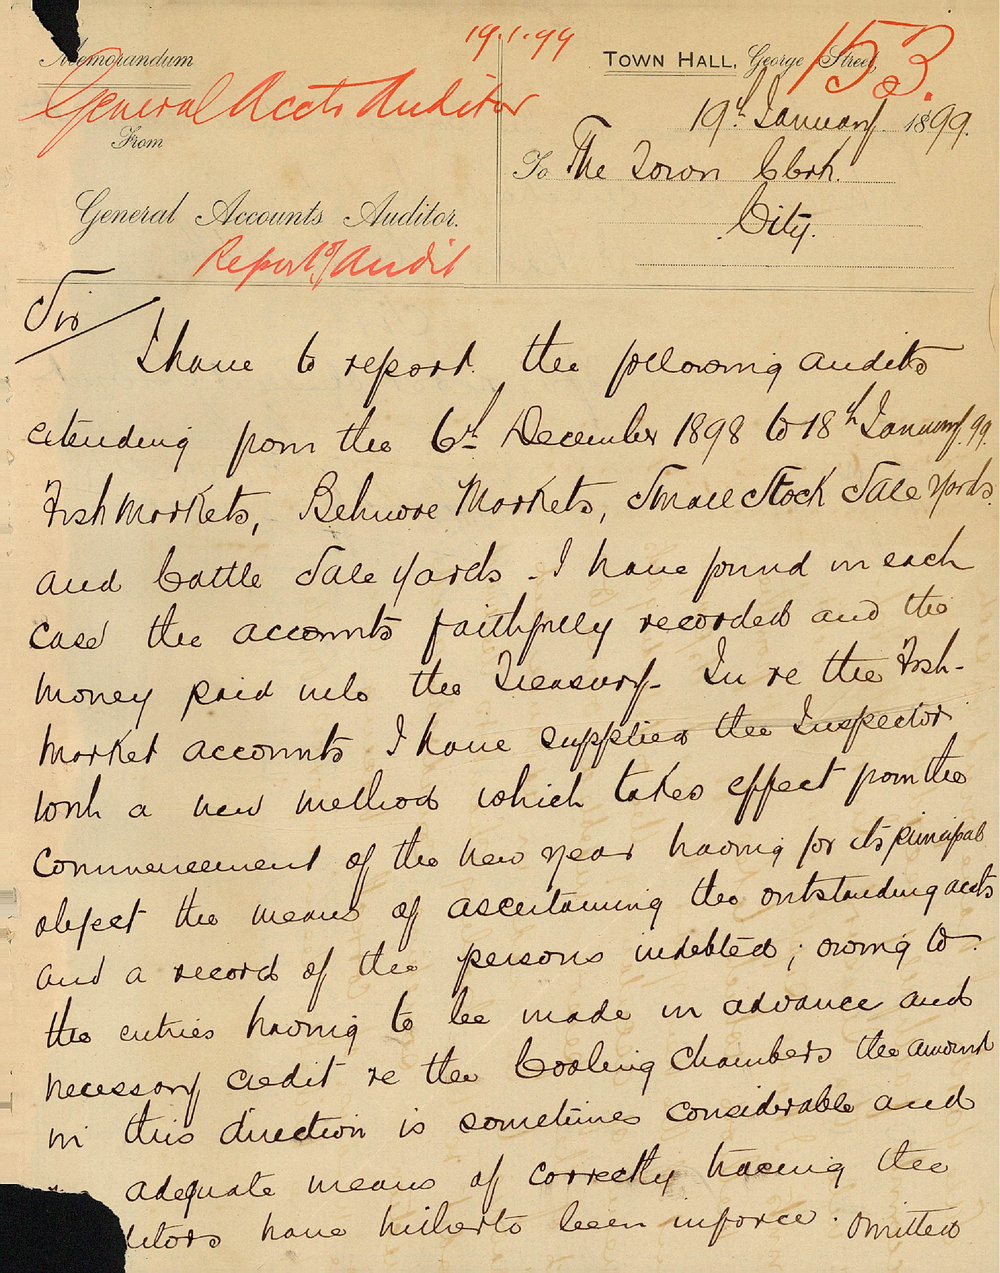 19.1.99
Memorandum
General Accts Auditor
From
General Accounts Auditor.
Report of Audit
TOWN HALL, George Street,
153.
19th January 1899.
To The Town Clerk.
City.
Sir
I have to report the following audits
extending from the 6th December 1898 to 18th January 99.
Fish Markets, Belmore Markets, Small Stock Sale Yards
and Cattle Sale Yards. I have found in each
case the accounts faithfully recorded and the
money paid into the Treasury - In re the Fish-
Market accounts I have supplied the Inspector
with a new method which takes effect from the
commencement of the new year having for its principal
object the means of ascertaining the outstanding accts
and a record of the persons indebted; owing to
the entries having to be made in advance and
necessary credit re the Cooling Chambers the amount
in this direction is sometimes considerable and
adequate means of correctly tracing the
ditors have hitherto been inforce. Omitted